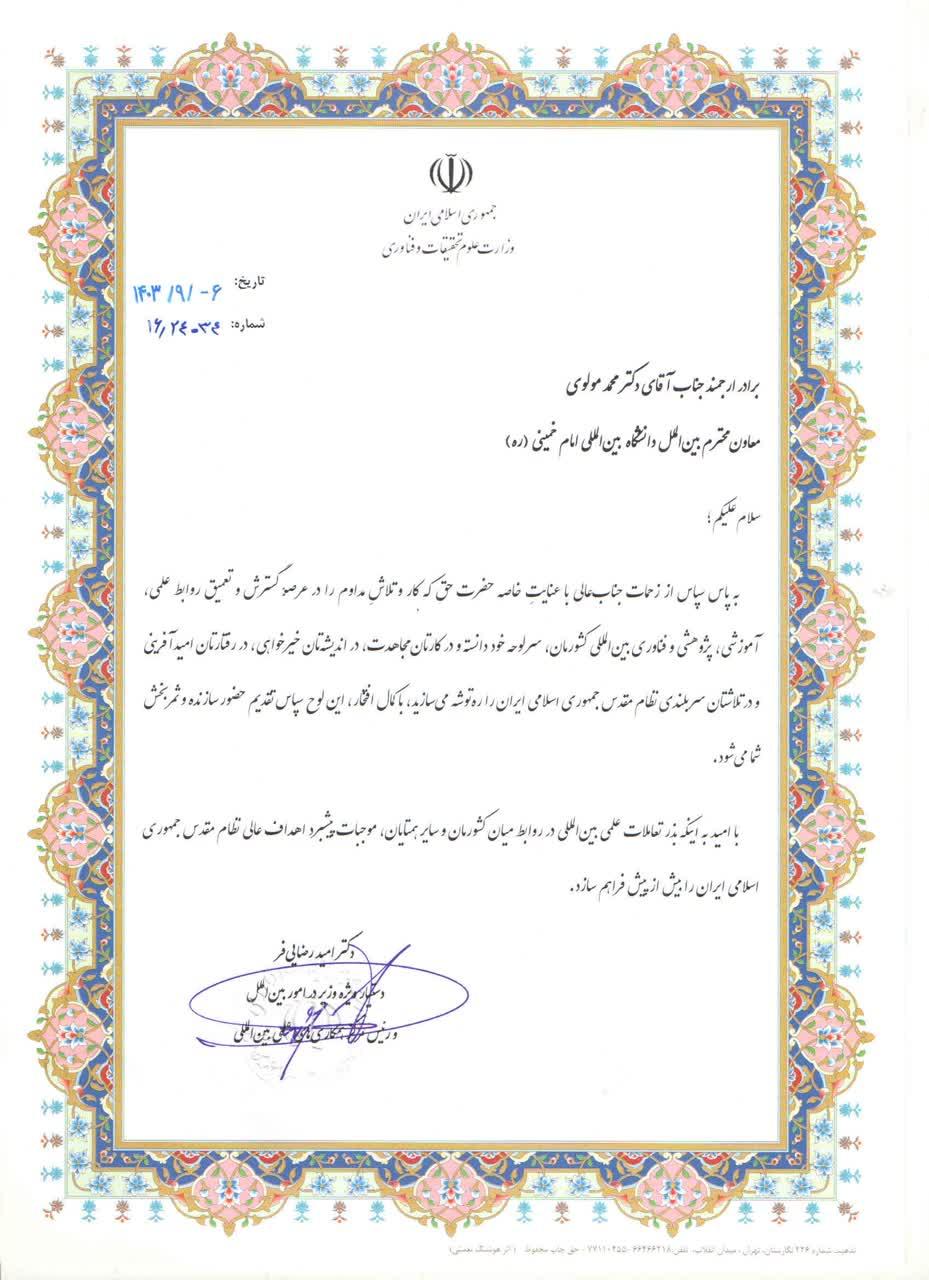 جمهوری اسلامی ایران
وزارت علوم تحقیقات و فناوری
تاریخ: ۱۴۰۳/۹/۰۶
شماره: ۱۶/۲۴۰۳۴
برادر ارجمند جناب آقای دکتر محمد مولوی
معاون محترم بین‌الملل دانشگاه بین‌المللی امام خمینی (ره)
سلام علیکم؛
به پاس سپاس از زحمات جناب‌عالی با عنایتِ خاصه حضرت حق که کار و تلاشِ مداوم را در عرصهٔ گسترش و تعمیق روابط علمی،
آموزشی، پژوهشی و فناوری بین‌المللی کشورمان، سرلوحه خود دانسته و در کارتان مجاهدت، در اندیشه‌تان خیرخواهی، در رفتارتان امیدآفرینی
و در تلاشتان سربلندی نظام مقدس جمهوری اسلامی ایران را ره‌توشه می‌سازید، با کمال افتخار، این لوح سپاس تقدیم حضور سازنده و ثمربخش
شما می‌شود.
با امید به اینکه بذر تعاملات علمی بین‌المللی در روابط میان کشورمان و سایر همتایان، موجبات پیشبرد اهداف عالی نظام مقدس جمهوری
اسلامی ایران را بیش از پیش فراهم سازد.
دکتر امید رضایی‌فر
دستیار ویژه وزیر در امور بین‌الملل
و رئیس مرکز همکاری‌های علمی بین‌المللی
تذهیب شماره ۲۲۶ نگارستان، تهران، میدان انقلاب، تلفن: ۶۶۴۶۶۲۱۸ - ۷۷۱۱۰۲۵۵ - حق چاپ محفوظ (اثر هوشنگ نعمتی)